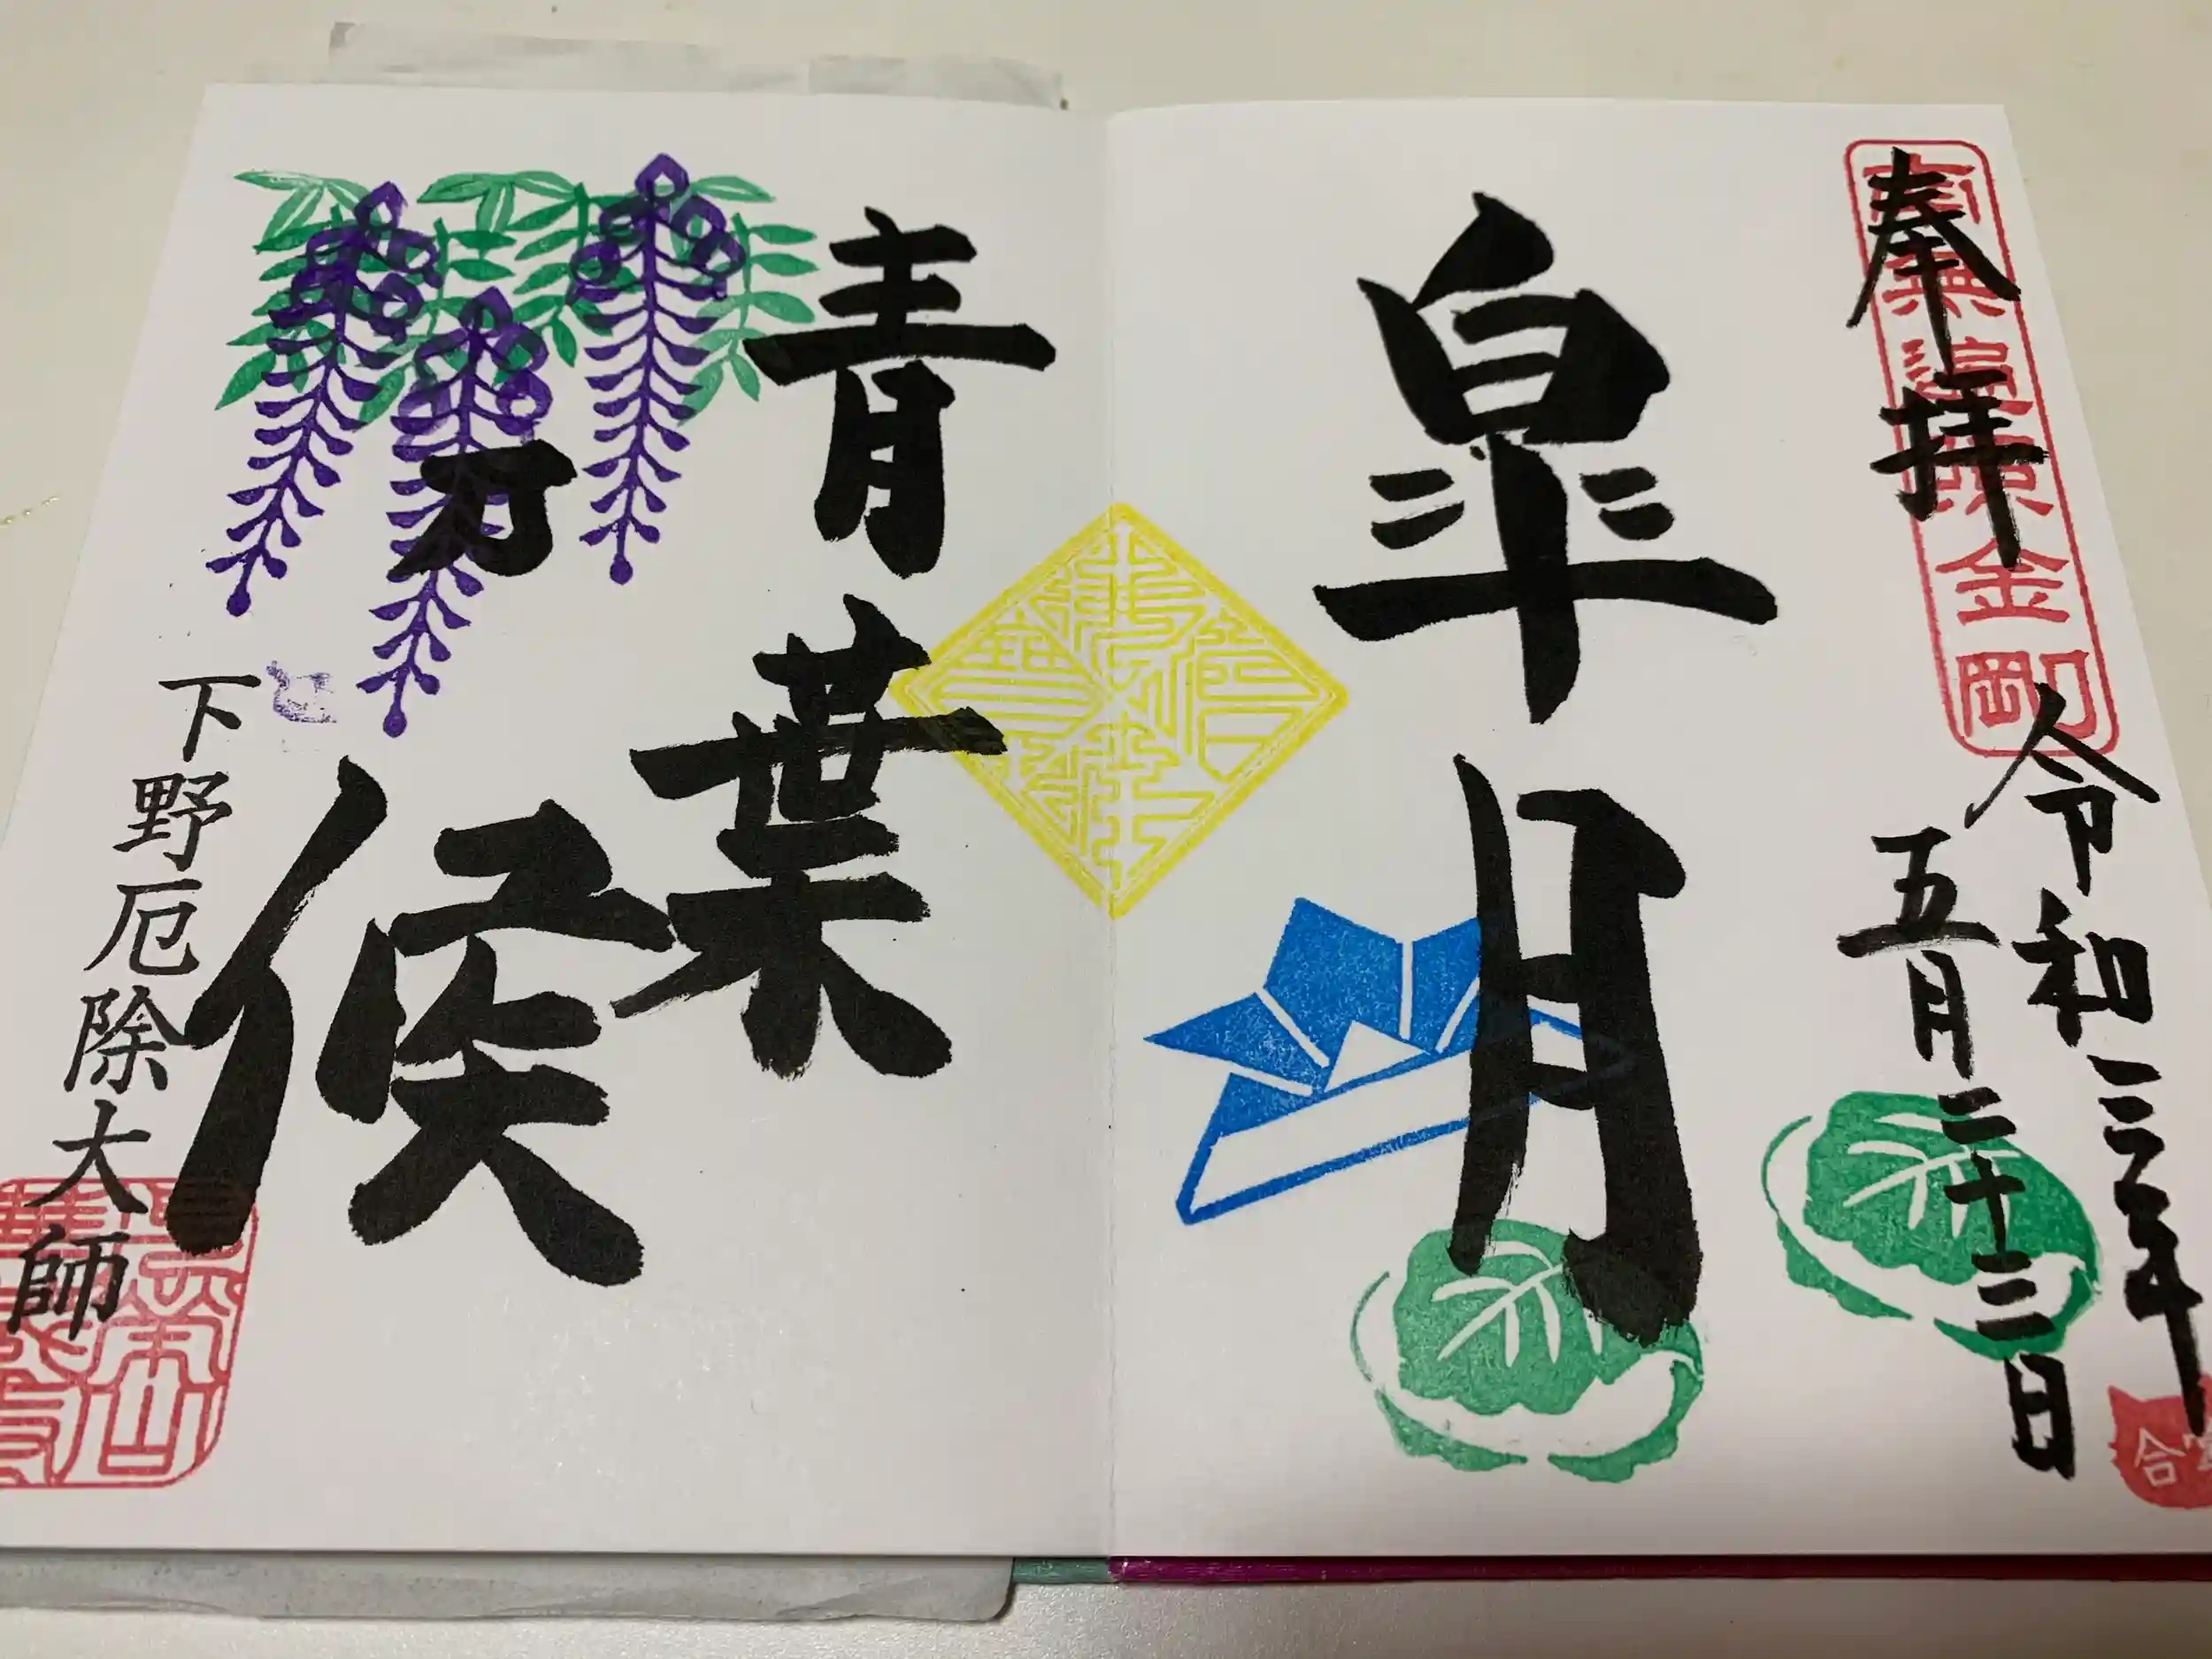 奉拝
南無遍照金剛
令和三年
五月二十三日
皐月
青葉
万
候
下野厄除大師